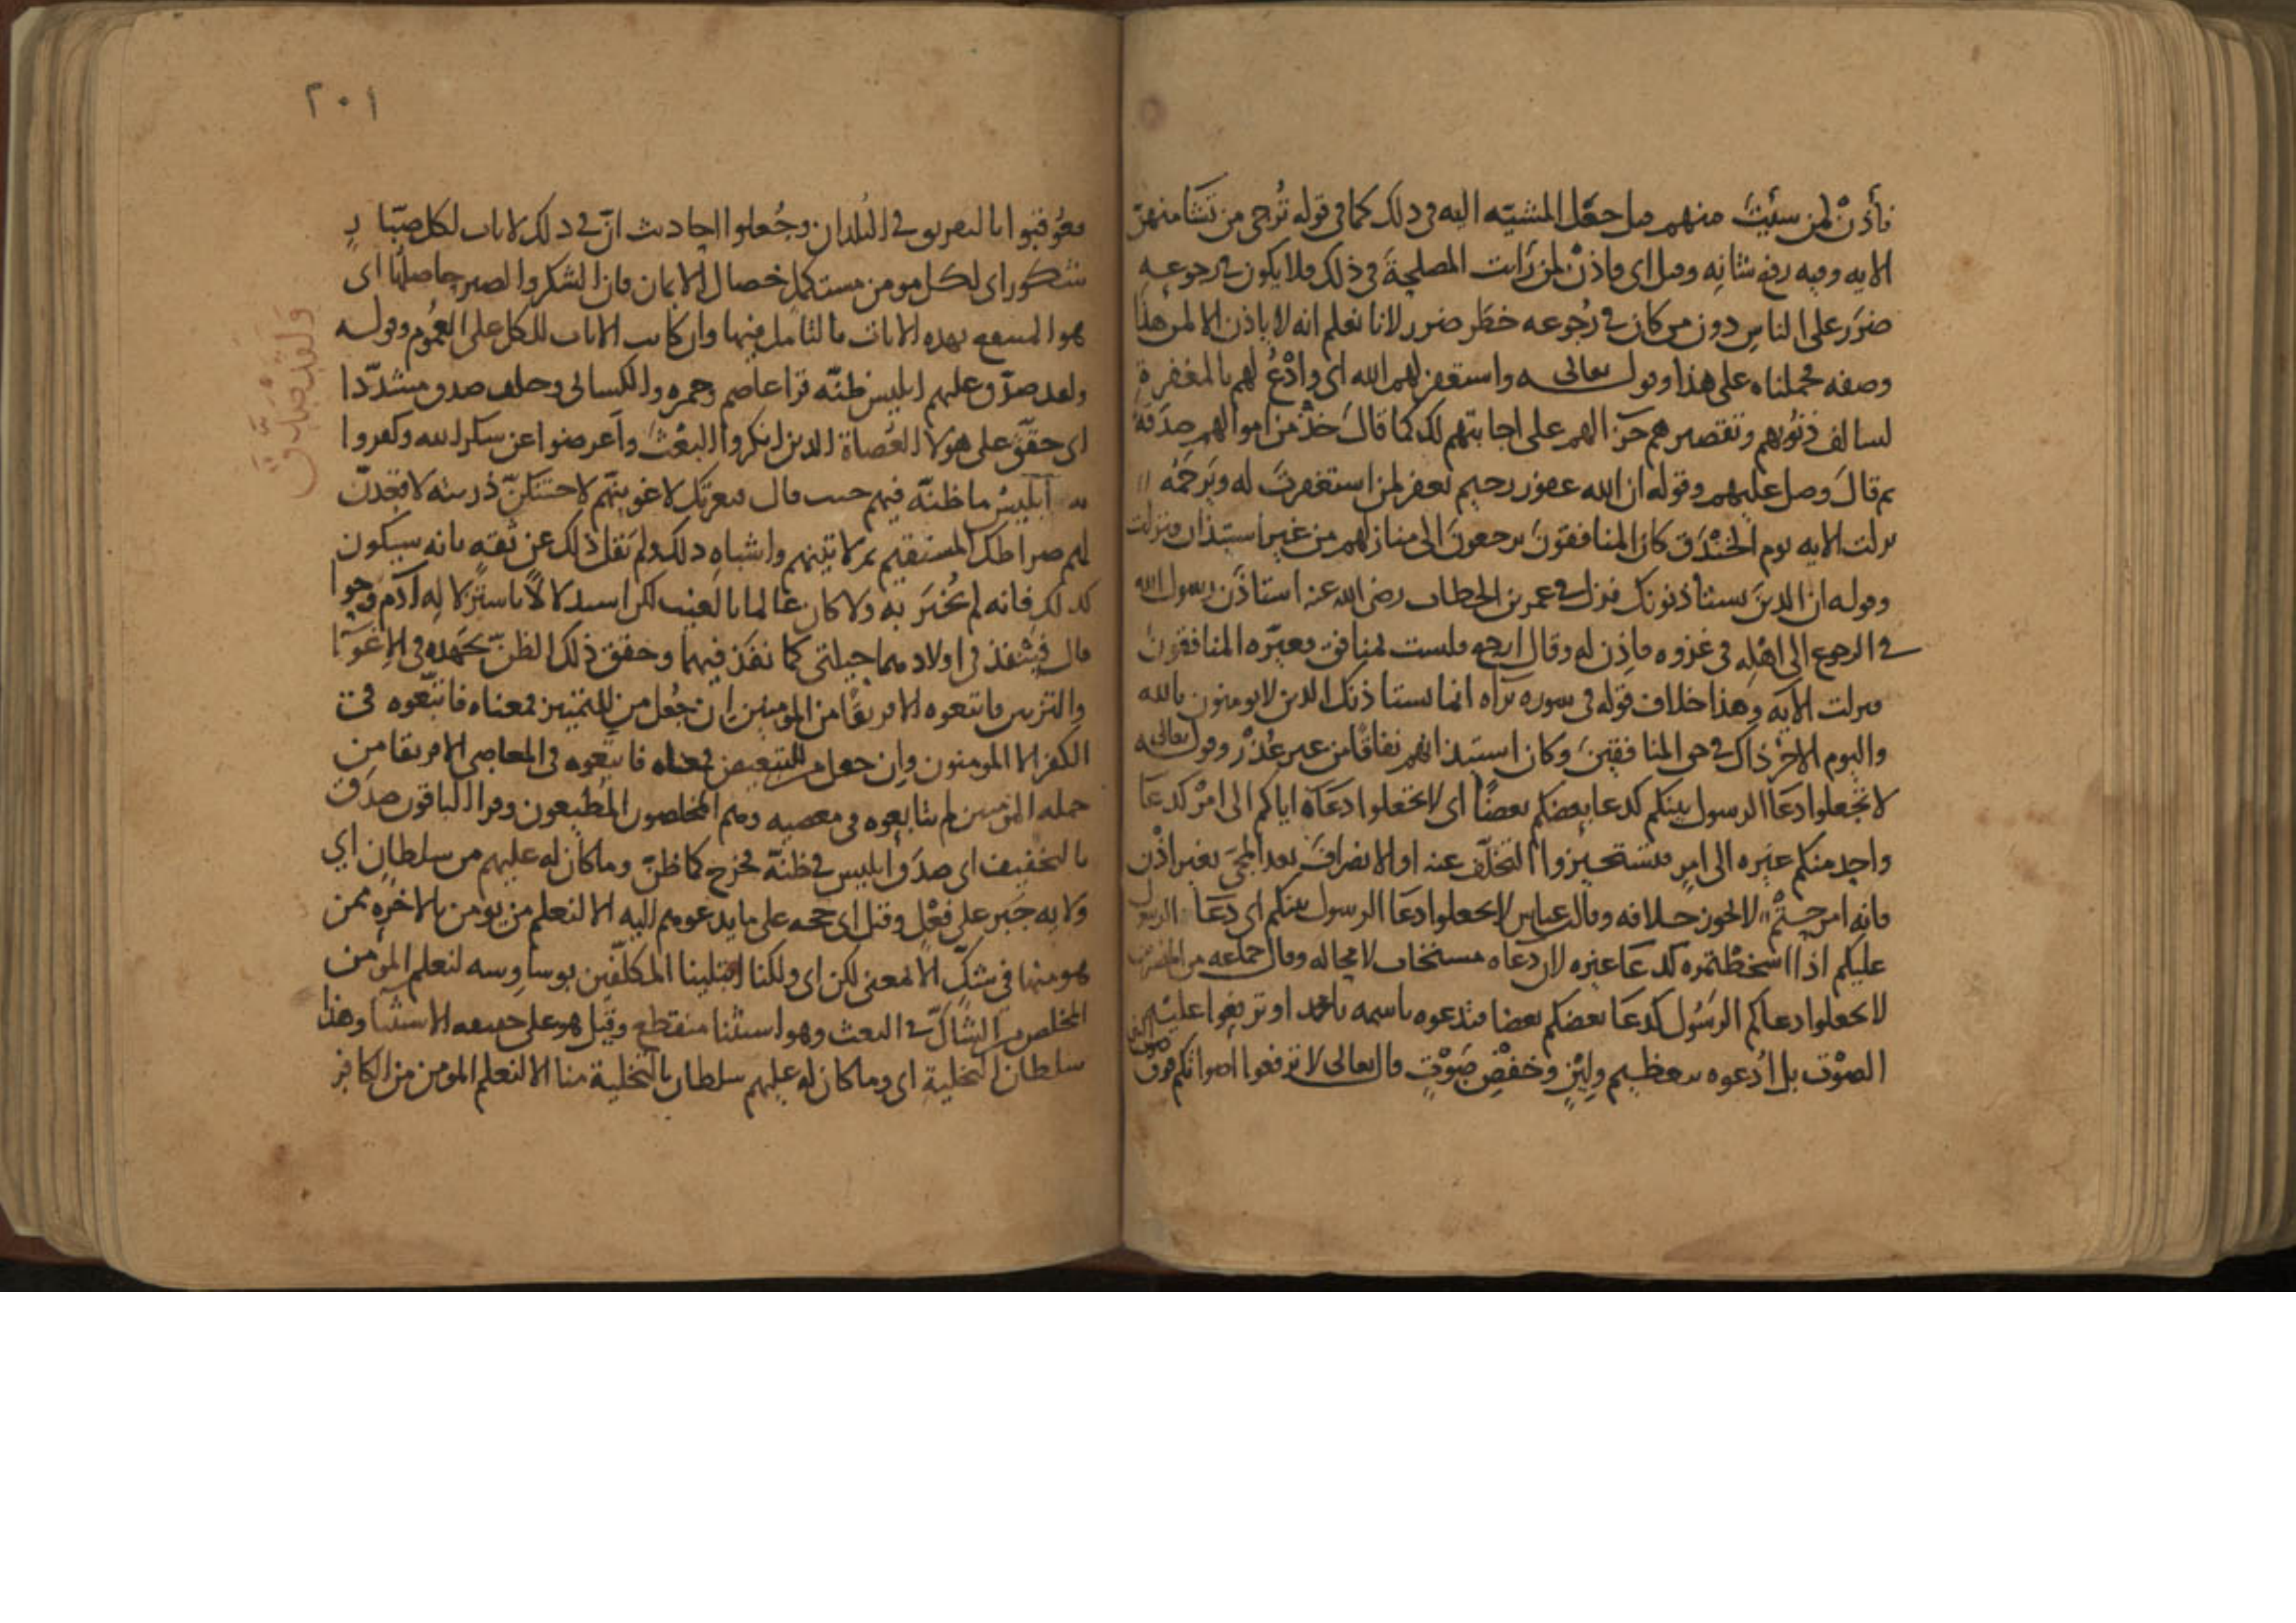 فأذن لمن شئت منهم قيل جعل المشية اليه في ذلك كما في قوله ترجي من تشا منهن
الايه وفيه رفع شانه وقيل اي فاذن لمن رايت المصلحة في ذلك فلا يكون في رجوعه
ضرر على الناس دون من كان في رجوعه خطر ضرر لانا نعلم انه لا ياذن الا لمن هذا
وصفه فحملناه على هذا وقوله تعالى واستغفر لهم الله اي وادع لهم بالمغفرة
لسالف ذنوبهم وتقصيرهم جزا لهم على اجابتهم لك كما قال خذ من اموالهم صدقة
ثم قال وصل عليهم وقوله ان الله غفور رحيم يغفر لمن استغفرت له ويرحمه
نزلت الايه يوم الخندق كان المنافقون يرجعون الى منازلهم من غير استيذان فنزلت
وقوله ان الذين يستأذنونك نزل في عمر بن الخطاب رضي الله عنه استاذن رسول الله
في الرجوع الى اهله في غزوه فاذن له وقال ارجع فلست بمنافق فعيره المنافقون
فنزلت الايه وهذا خلاف قوله في سوره براه انما يستاذنك الذين لا يومنون بالله
واليوم الاخر ذاك في حق المنافقين وكان استيذانهم نفاقا من غير عذر وقوله تعالى
لا تجعلوا دعا الرسول بينكم كدعا بعضكم بعضا اي لا تجعلوا دعاه اياكم الى امر كدعا
واحد منكم غيره الى امر فتستجيزوا التخلف عنه او الانصراف بعد المجي بغير اذن
فانه امر حتم لا يجوز خلافه وقال ابن عباس لا تجعلوا دعا الرسول بينكم اي دعا الرسول
عليكم اذا اسخطتموه كدعا غيره لان دعاه مستجاب لا محاله وقال جماعه من المفسرين
لا تجعلوا دعاكم الرسول كدعا بعضكم بعضا فتدعوه باسمه يا محمد او ترفعوا عليه
الصوت بل ادعوه بتعظيم ولين وخفض صوت قال تعالى لا ترفعوا اصواتكم فوق صوت النبي
٢٠١
فعوقبوا بالتفريق في البلدان وجعلوا احاديث ان في ذلك لايات لكل صبار
شكور اي لكل مومن مستكمل خصال الايمان فان الشكر والصبر حاصلها اي
هو المنتفع بهذه الايات بالتامل فيها وان كانت الايات للكل على العموم وقوله
ولقد صدق عليهم ابليس ظنه قرا عاصم وحمزه والكسائي وخلف صدق مشددا
اي حقق على هولا العصاة الذين انكروا البعث واعرضوا عن شكر الله وكفروا
به ابليس ما ظنه فيهم حيث قال فبعزتك لاغوينهم لاحتنكن ذريته لاقعدن
لهم صراطك المستقيم ثم لاتينهم واشباه ذلك ولم يقل ذلك عن ثقه بانه سيكون
كذلك فانه لم يخبر به ولا كان عالما بالغيب لكن استدلالا باستزلاله ادم وحوا
قال فينفذ في اولادهما حيلتي كما نفذ فيهما وحقق ذلك الظن بجهده في الاغوا
والتزيين فاتبعوه الا فريقا من المومنين ان جعل من للتبيين فمعناه فاتبعوه في
الكفر الا المومنون وان جعل من للتبعيض فمعناه فاتبعوه في المعاصي الا فريقا من
جمله المومنين لم يتابعوه في معصيه وهم المخلصون المطيعون وقرا الباقون صدق
بالتخفيف اي صدق ابليس في ظنه فخرج كما ظن وما كان له عليهم من سلطان اي
ولايه جبر على فعل وقيل اي حجه على ما يدعوهم اليه الا لنعلم من يومن بالاخره ممن
هو منها في شك الا بمعنى لكن اي ولكنا ابتلينا المكلفين بوساوسه لنعلم المومن
المخلص من الشاك في البعث وهو استثنا منقطع وقيل هو على حقيقه الاستثنا وهذا
سلطان التخلية اي وما كان له عليهم سلطان بالتخلية منا الا لنعلم المومن من الكافر
ولقد صدق